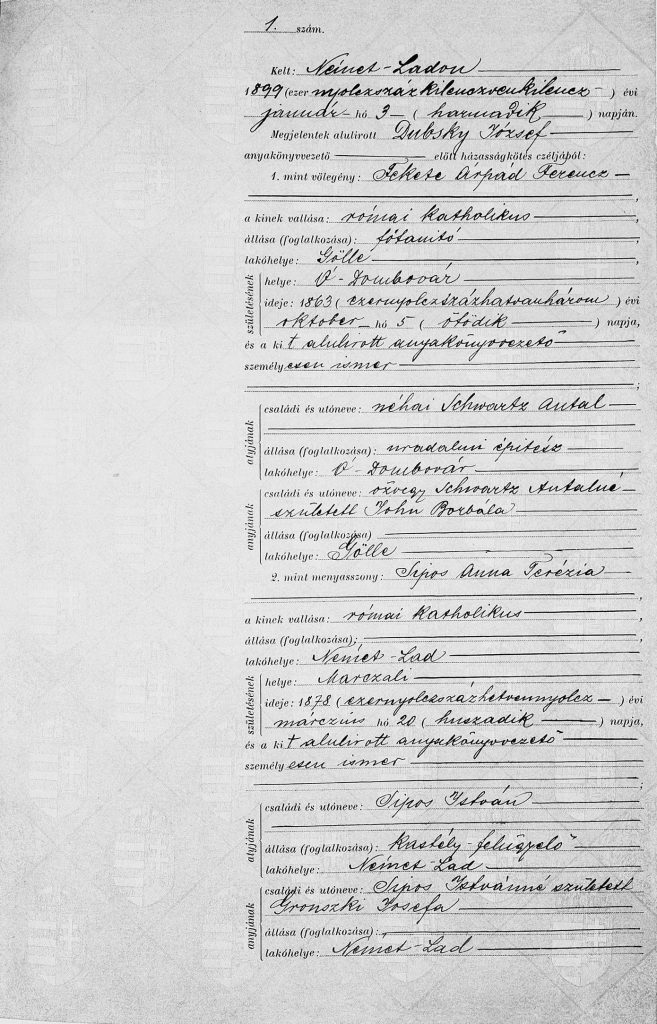 1. szám.
Kelt: Német-Ladon
1899 (ezer nyolczszázkilenczvenkilencz) évi
január hó 3 (harmadik) napján.
Megjelentek alulirott Dubsky József
anyakönyvvezető előtt házasságkötés czéljából:
1. mint vőlegény: Fekete Árpád Ferencz
,
a kinek vallása: római katholikus,
állása (foglalkozása): főtanitó,
lakóhelye: Gölle,
születésének
helye: Ó-Dombovár
ideje: 1863 (ezernyolczszázhatvanhárom) évi
október hó 5 (ötödik) napja,
és a kit alulirott anyakönyvvezető
személyesen ismer
;
atyjának
családi és utóneve: néhai Schwartz Antal
állása (foglalkozása): uradalmi épitész
lakóhelye: Ó-Dombovár
anyjának
családi és utóneve: özvegy Schwartz Antalné
született John Borbála
állása (foglalkozása)
lakóhelye: Gölle
2. mint menyasszony: Sipos Anna Terézia
,
a kinek vallása: római katholikus,
állása (foglalkozása):,
lakóhelye: Német-Lad,
születésének
helye: Marczali
ideje: 1878 (ezernyolczszázhetvennyolcz) évi
márczius hó 20 (huszadik) napja,
és a kit alulirott anyakönyvvezető
személyesen ismer
;
atyjának
családi és utóneve: Sipos István
állása (foglalkozása): kastély-felügyelő
lakóhelye: Német-Lad
anyjának
családi és utóneve: Sipos Istvánné született
Gronszki Josefa
állása (foglalkozása):
lakóhelye: Német-Lad